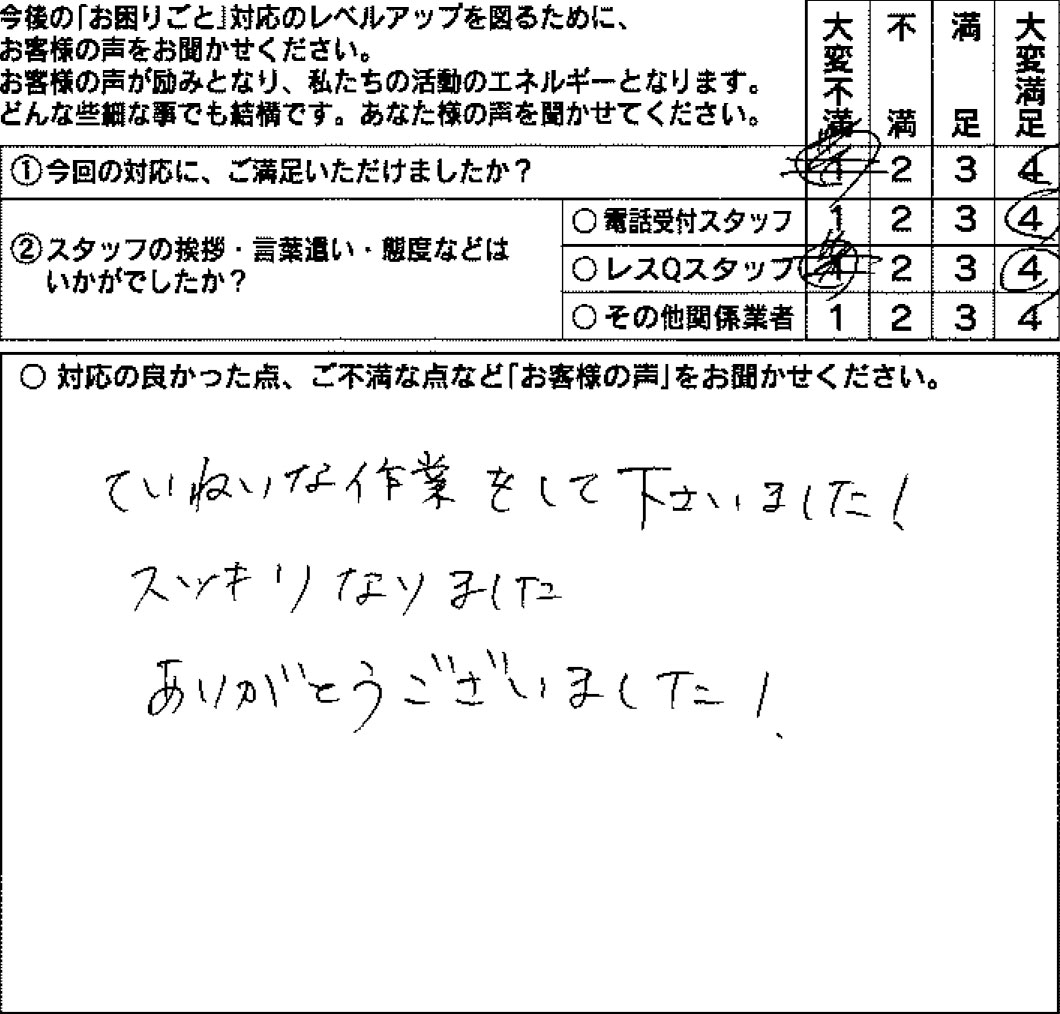 今後の「お困りごと」対応のレベルアップを図るために、
お客様の声をお聞かせください。
お客様の声が励みとなり、私たちの活動のエネルギーとなります。
どんな些細な事でも結構です。あなた様の声を聞かせてください。
大変不満 不満 満足 大変満足
①今回の対応に、ご満足いただけましたか？ 1 2 3 4
②スタッフの挨拶・言葉遣い・態度などは
いかがでしたか？
○ 電話受付スタッフ 1 2 3 4
○ レスQスタッフ 1 2 3 4
○ その他関係業者 1 2 3 4
○ 対応の良かった点、ご不満な点など「お客様の声」をお聞かせください。
ていねいな作業をして下さいました！
スッキリなりました
ありがとうございました！